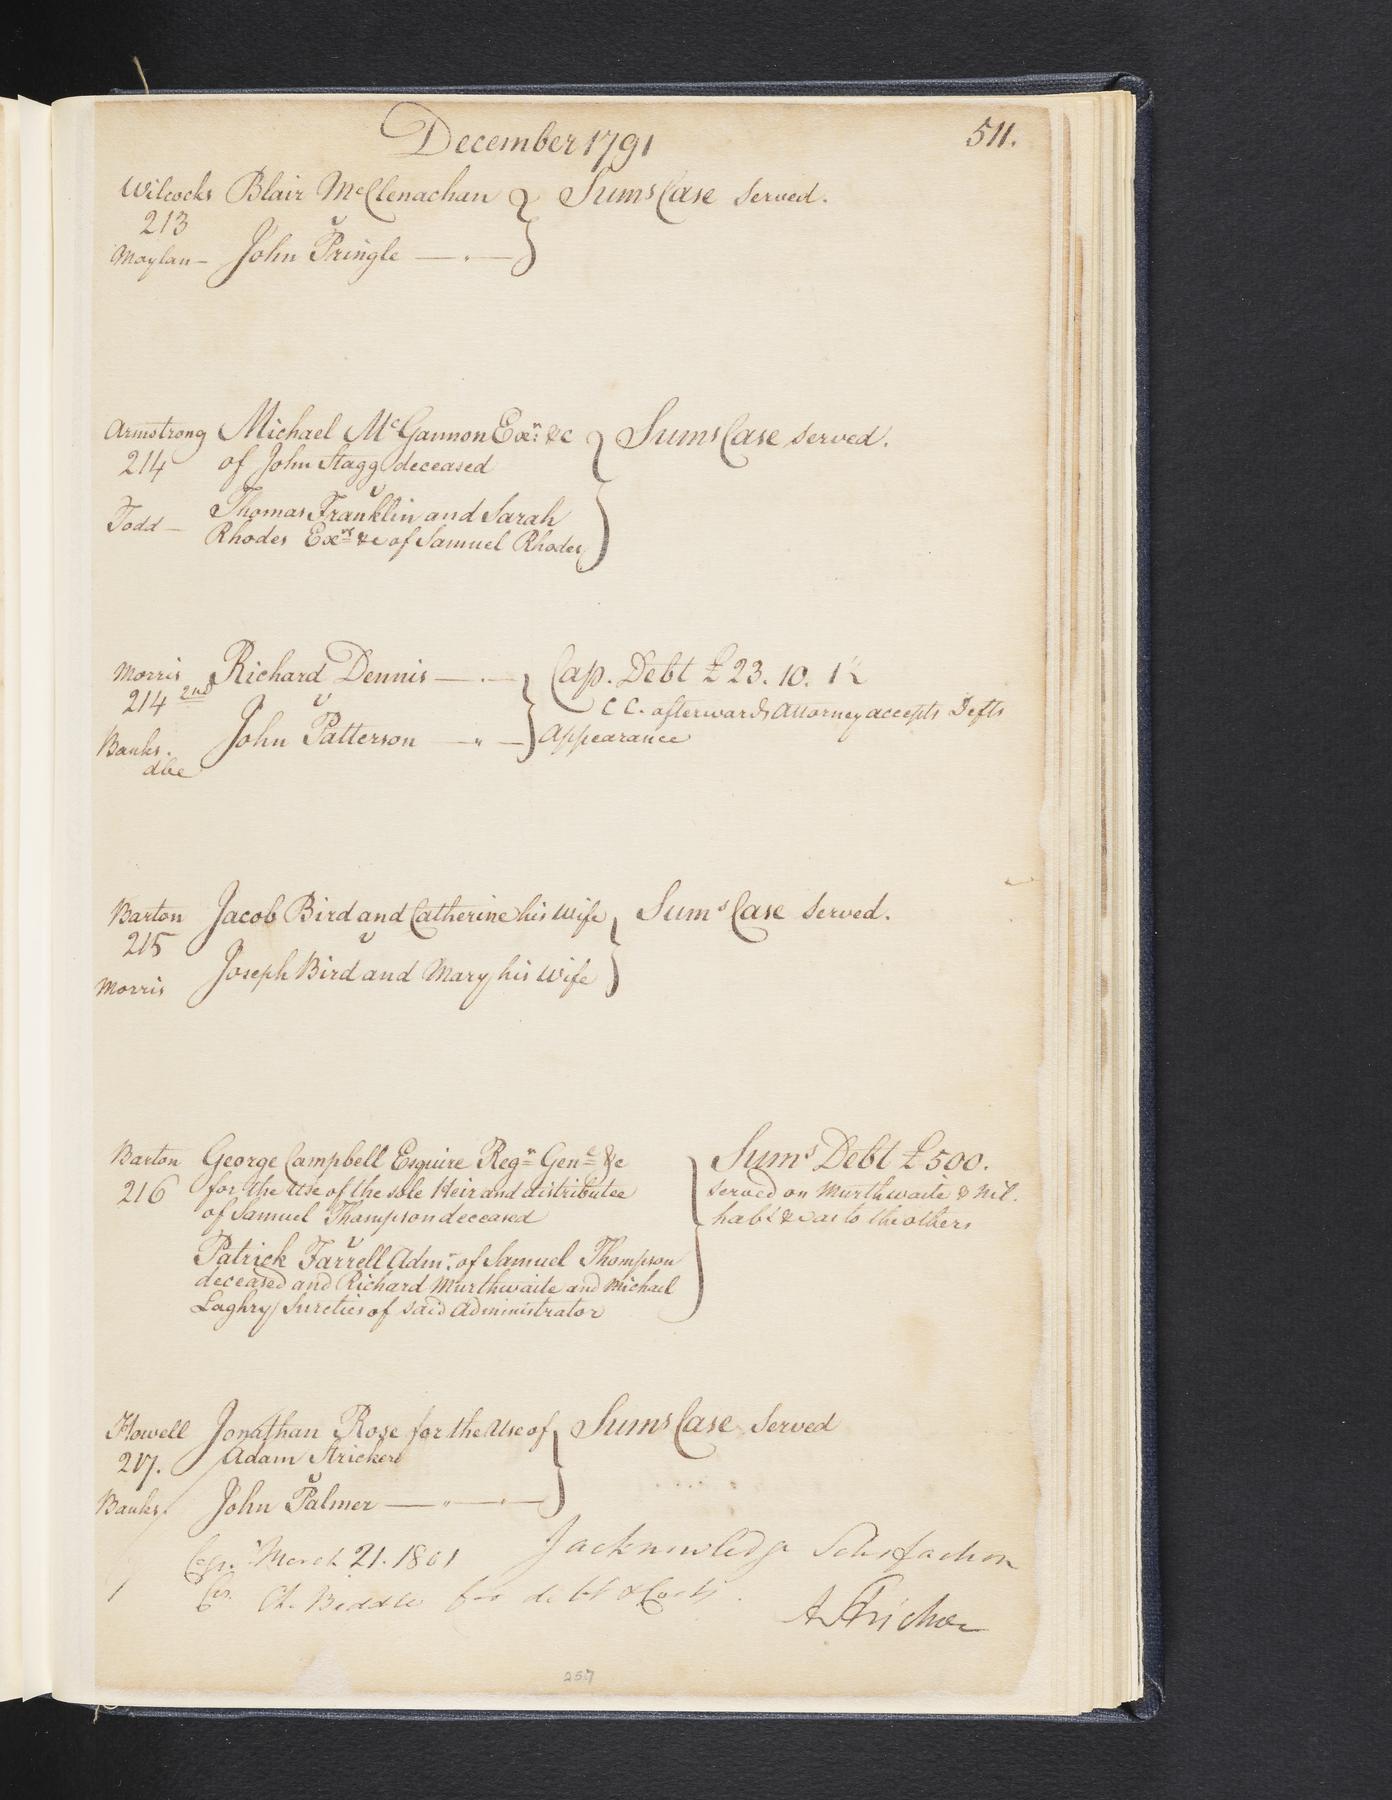 December 1791
511.
Wilcocks Blair McClenachan } Sums Case Served.
213 v
Moylan — John Pringle
Armstrong Michael McGannon Exr. &c } Sums Case Served.
214 of John Stagg deceased
v
Todd — Thomas Franklin and Sarah
Rhodes Exrs &c of Samuel Rhodes
Morris Richard Dennis } Cap. Debt £23. 10.
214 2nd v C C. afterwards Attorney accepts Defts
Banks. John Patterson Appearance
dbe
Barton Jacob Bird and Catherine his Wife } Sums Case Served.
215 v
Morris Joseph Bird and Mary his Wife
Barton George Campbell Esquire Regr Genl &c } Sums Debt £500.
216 for the Use of the sole Heir and distributee served on Murthwaite & Nil.
of Samuel Thompson deceased habt &c as to the others
v
Patrick Farrell Admr. of Samuel Thompson
deceased and Richard Murthwaite and Michael
Laghry Sureties of said Administrator
Howell Jonathan Rose for the Use of } Sums Case Served
217. Adam Stricker
v
Banks. John Palmer
March 21. 1801 I acknowledge Satisfaction
C. Biddle for debt & Costs.
A Stricker
257